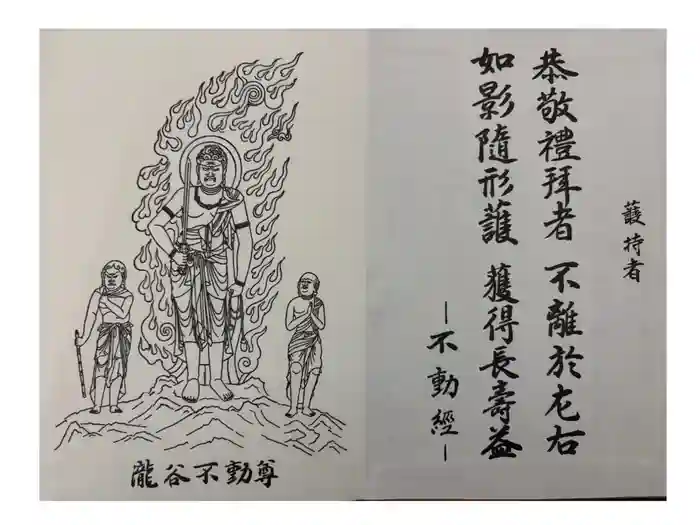 護持者
恭敬禮拜者 不離於左右
如影隨形護 獲得長壽益
―不動經―
瀧谷不動尊